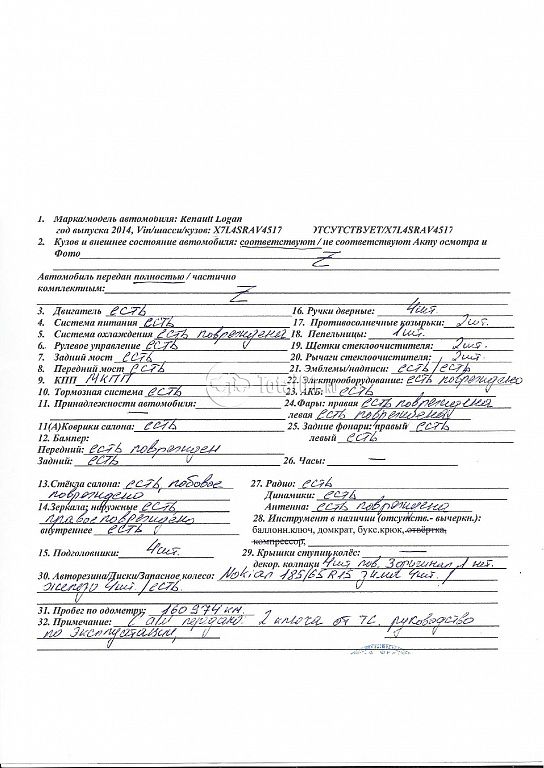 1. Марка/модель автомобиля: Renault Logan
год выпуска 2014, Vin/шасси/кузов: X7L4SRAV4517 ОТСУТСТВУЕТ/X7L4SRAV4517
2. Кузов и внешнее состояние автомобиля: соответствуют / не соответствуют Акту осмотра и
Фото Z
Автомобиль передан полностью / частично
комплектным: Z
3. Двигатель есть
4. Система питания есть
5. Система охлаждения есть повреждена
6. Рулевое управление есть
7. Задний мост есть
8. Передний мост есть
9. КПП МКПП
10. Тормозная система есть
11. Принадлежности автомобиля: —
11(А)Коврики салона: есть
12. Бампер:
Передний: есть поврежден
Задний: есть
13.Стёкла салона: есть, лобовое
повреждено
14.Зеркала: наружные есть
правое повреждено
внутреннее есть
15. Подголовники: 4шт.
16. Ручки дверные: 4шт.
17. Противосолнечные козырьки: 2шт.
18. Пепельницы: 1шт.
19. Щетки стеклоочистителя: 2шт.
20. Рычаги стеклоочистителя: 2шт.
21. Эмблемы/надписи: есть/есть
22. Электрооборудование: есть повреждено
23. АКБ: есть
24.Фары: правая есть повреждена
левая есть повреждена
25. Задние фонари: правый есть
левый есть
26. Часы: —
27. Радио: есть
Динамики: есть
Антенна: есть повреждена
28. Инструмент в наличии (отсутств.- вычеркн.):
баллонн.ключ, домкрат, букс.крюк, отвёртка,
компрессор,
29. Крышки ступиц колёс:
декор. колпаки 4шт пов. 1 нет.
30. Авторезина/Диски/Запасное колесо: Nokian 185/65 R15 зима 4шт. /
железо 4шт/ есть.
31. Пробег по одометру: 160974 км.
32. Примечание: с а/м передано: 2 ключа от ТС, руководство
по эксплуатации,